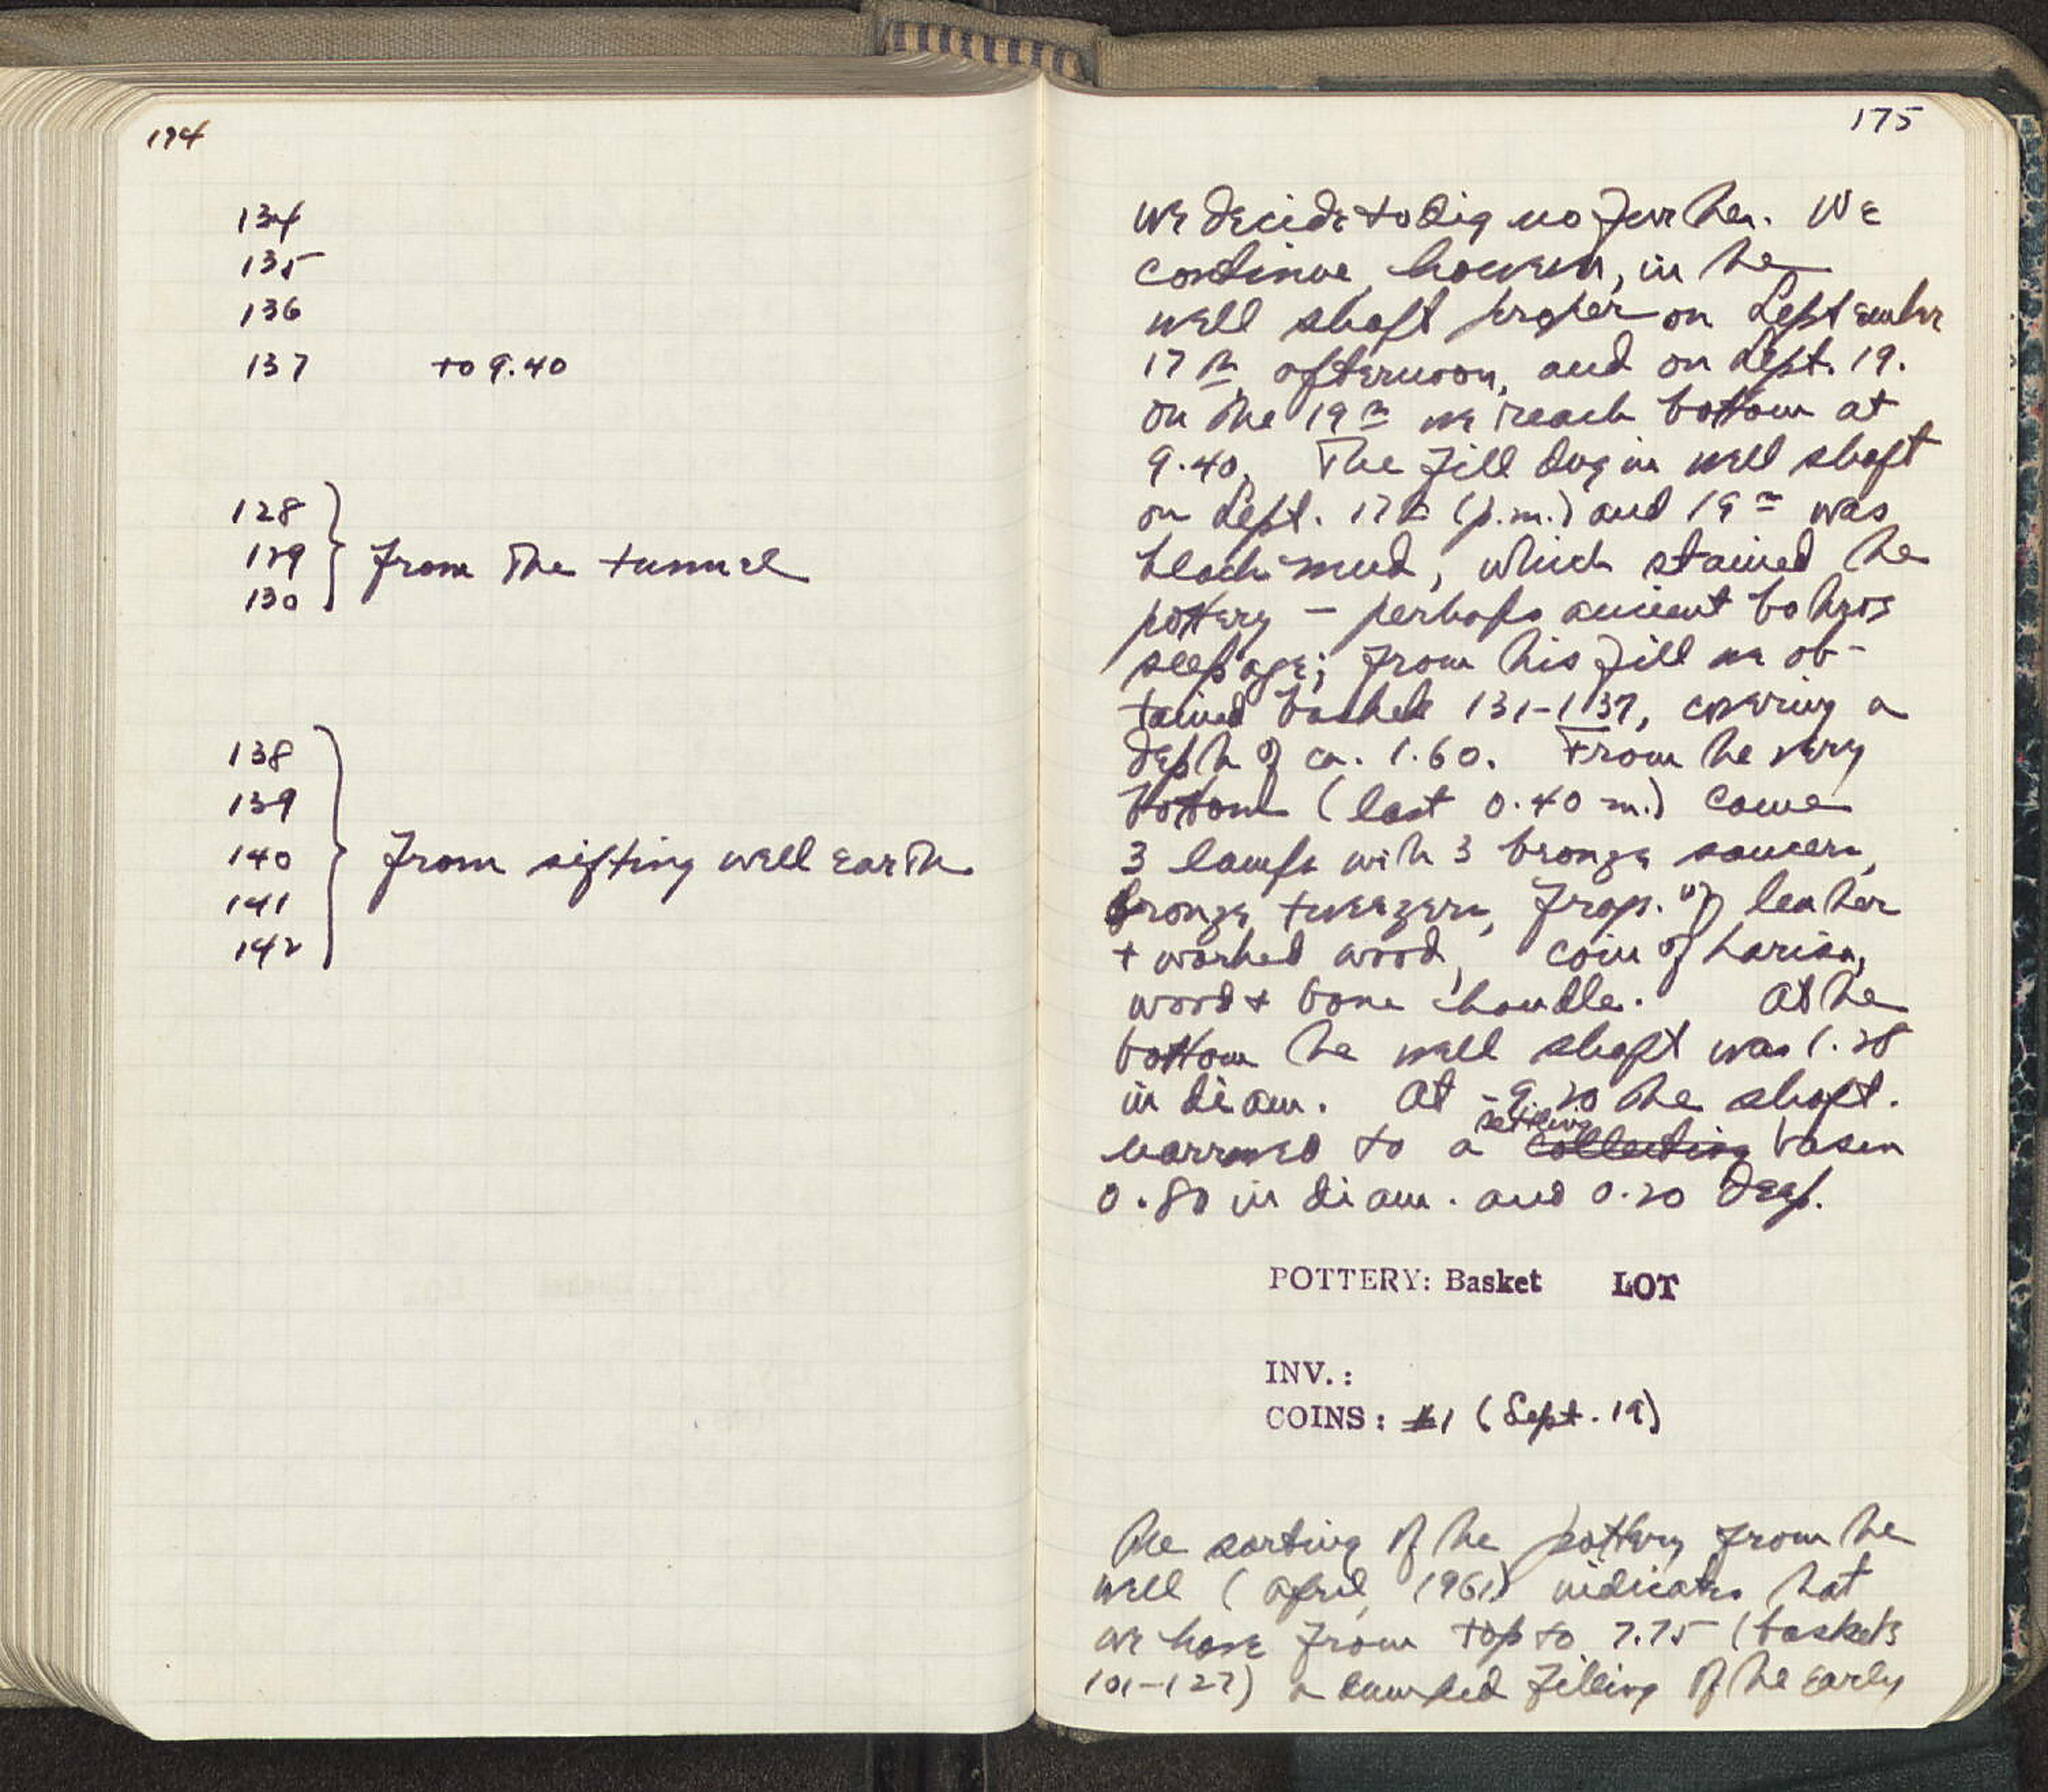 174
134
135
136
137 to 9.40
128
129
130
from the tunnel
138
139
140
141
142
from sifting well earth
175
we decide to dig no further. We
continue, however, in the
well shaft proper on September
17th, afternoon, and on Sept. 19.
On the 19th we reach bottom at
9.40. The fill dug in well shaft
on Sept. 17th (p.m.) and 19th was
black mud, which stained the
pottery – perhaps ancient bothros
seepage; from this fill we ob-
tained baskets 131-137, covering a
depth of ca. 1.60. From the very
bottom (last 0.40 m.) came
3 lamps with 3 bronze saucers,
bronze tweezers, frags. of leather
+ worked wood, coin of Larisa,
wood + bone handle. At the
bottom the well shaft was 1.28
in diam. At -9.20 the shaft
narrowed to a settling collecting basin
0.80 in diam. and 0.20 deep.
POTTERY: Basket LOT
INV.:
COINS: #1 (Sept. 19)
The sorting of the pottery from the
well (April, 1961) indicates that
we have from top to 7.75 (baskets
101-127) a dumped filling of the early